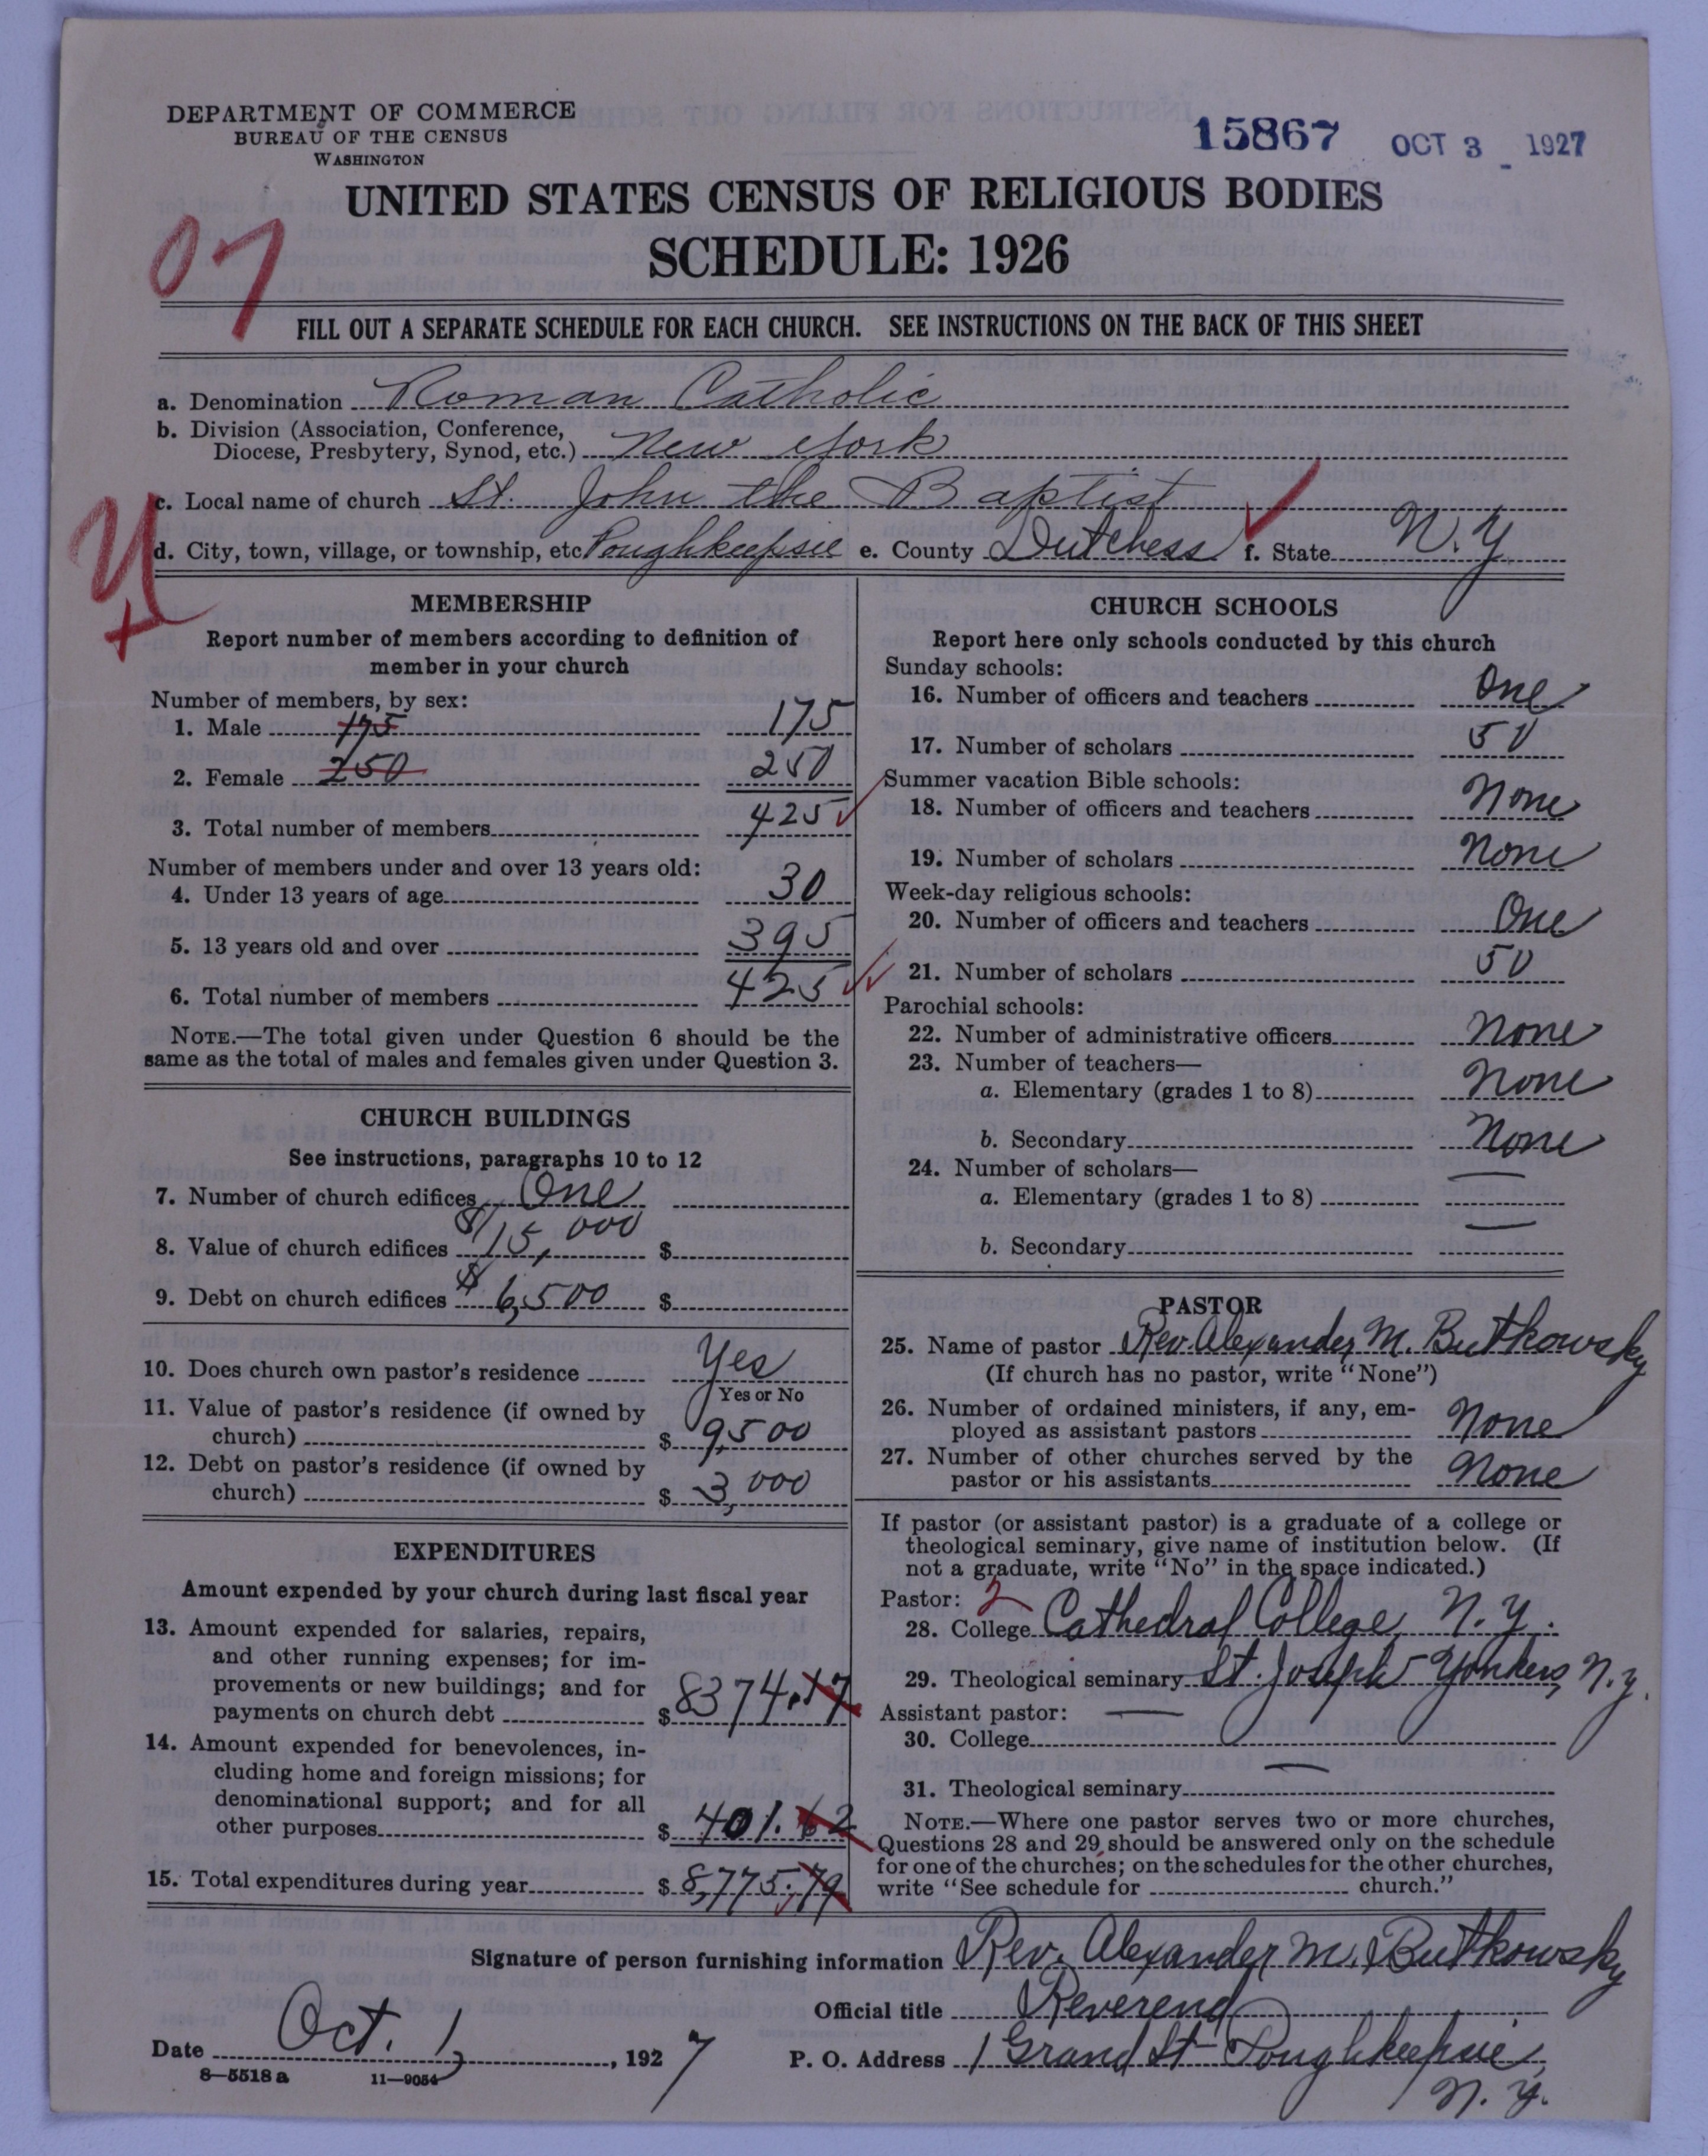 DEPARTMENT OF COMMERCE
BUREAU OF THE CENSUS
WASHINGTON
15867 OCT 3 1927
UNITED STATES CENSUS OF RELIGIOUS BODIES
SCHEDULE: 1926
07
FILL OUT A SEPARATE SCHEDULE FOR EACH CHURCH. SEE INSTRUCTIONS ON THE BACK OF THIS SHEET
a. Denomination Roman Catholic
b. Division (Association, Conference,
Diocese, Presbytery, Synod, etc.) New York
c. Local name of church St. John the Baptist
d. City, town, village, or township, etc Poughkeepsie e. County Dutchess f. State N.Y
MEMBERSHIP
Report number of members according to definition of
member in your church
Number of members, by sex:
1. Male 175 175
2. Female 250 250
3. Total number of members 425
Number of members under and over 13 years old:
4. Under 13 years of age 30
5. 13 years old and over 395
6. Total number of members 425
NOTE.—The total given under Question 6 should be the
same as the total of males and females given under Question 3.
CHURCH BUILDINGS
See instructions, paragraphs 10 to 12
7. Number of church edifices One
8. Value of church edifices $15,000 $
9. Debt on church edifices $6,500 $
10. Does church own pastor's residence Yes
Yes or No
11. Value of pastor's residence (if owned by
church) $ 9,500
12. Debt on pastor's residence (if owned by
church) $ 3,000
EXPENDITURES
Amount expended by your church during last fiscal year
13. Amount expended for salaries, repairs,
and other running expenses; for im-
provements or new buildings; and for
payments on church debt $ 8374.17
14. Amount expended for benevolences, in-
cluding home and foreign missions; for
denominational support; and for all
other purposes $ 401.62
15. Total expenditures during year $ 8,775.79
CHURCH SCHOOLS
Report here only schools conducted by this church
Sunday schools:
16. Number of officers and teachers One
17. Number of scholars 50
Summer vacation Bible schools:
18. Number of officers and teachers None
19. Number of scholars None
Week-day religious schools:
20. Number of officers and teachers One
21. Number of scholars 50
Parochial schools:
22. Number of administrative officers None
23. Number of teachers—
a. Elementary (grades 1 to 8) None
b. Secondary None
24. Number of scholars—
a. Elementary (grades 1 to 8) —
b. Secondary —
PASTOR
25. Name of pastor Rev. Alexander M. Butkowsky
(If church has no pastor, write "None")
26. Number of ordained ministers, if any, em-
ployed as assistant pastors None
27. Number of other churches served by the
pastor or his assistants None
If pastor (or assistant pastor) is a graduate of a college or
theological seminary, give name of institution below. (If
not a graduate, write "No" in the space indicated.)
Pastor: 2
28. College Cathedral College, N.Y.
29. Theological seminary St. Joseph's Yonkers, N.Y.
Assistant pastor: —
30. College
31. Theological seminary —
NOTE.—Where one pastor serves two or more churches,
Questions 28 and 29 should be answered only on the schedule
for one of the churches; on the schedules for the other churches,
write "See schedule for church."
Signature of person furnishing information Rev. Alexander M. Butkowsky
Official title Reverend
Date Oct. 1, 1927 P. O. Address 1 Grand St Poughkeepsie,
N.Y.
8—5518a 11—9054